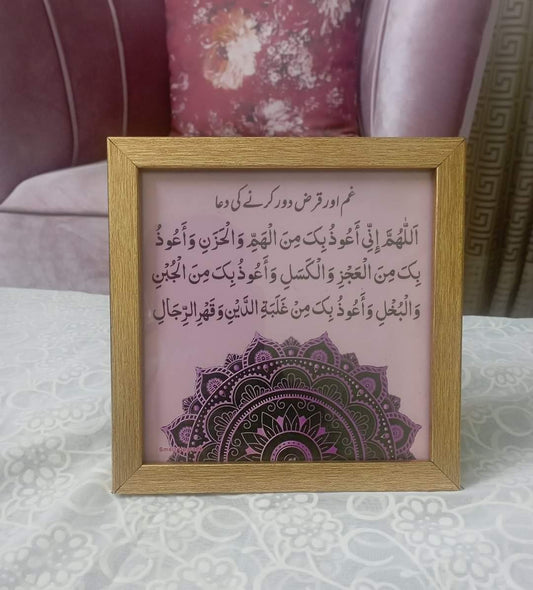 غم اور قرض دور کرنے کی دعا
اَللّٰهُمَّ إِنِّي أَعُوذُ بِكَ مِنَ الْهَمِّ وَالْحَزَنِ وَأَعُوذُ
بِكَ مِنَ الْعَجْزِ وَالْكَسَلِ وَأَعُوذُ بِكَ مِنَ الْجُبْنِ
وَالْبُخْلِ وَأَعُوذُ بِكَ مِنْ غَلَبَةِ الدَّيْنِ وَقَهْرِ الرِّجَالِ